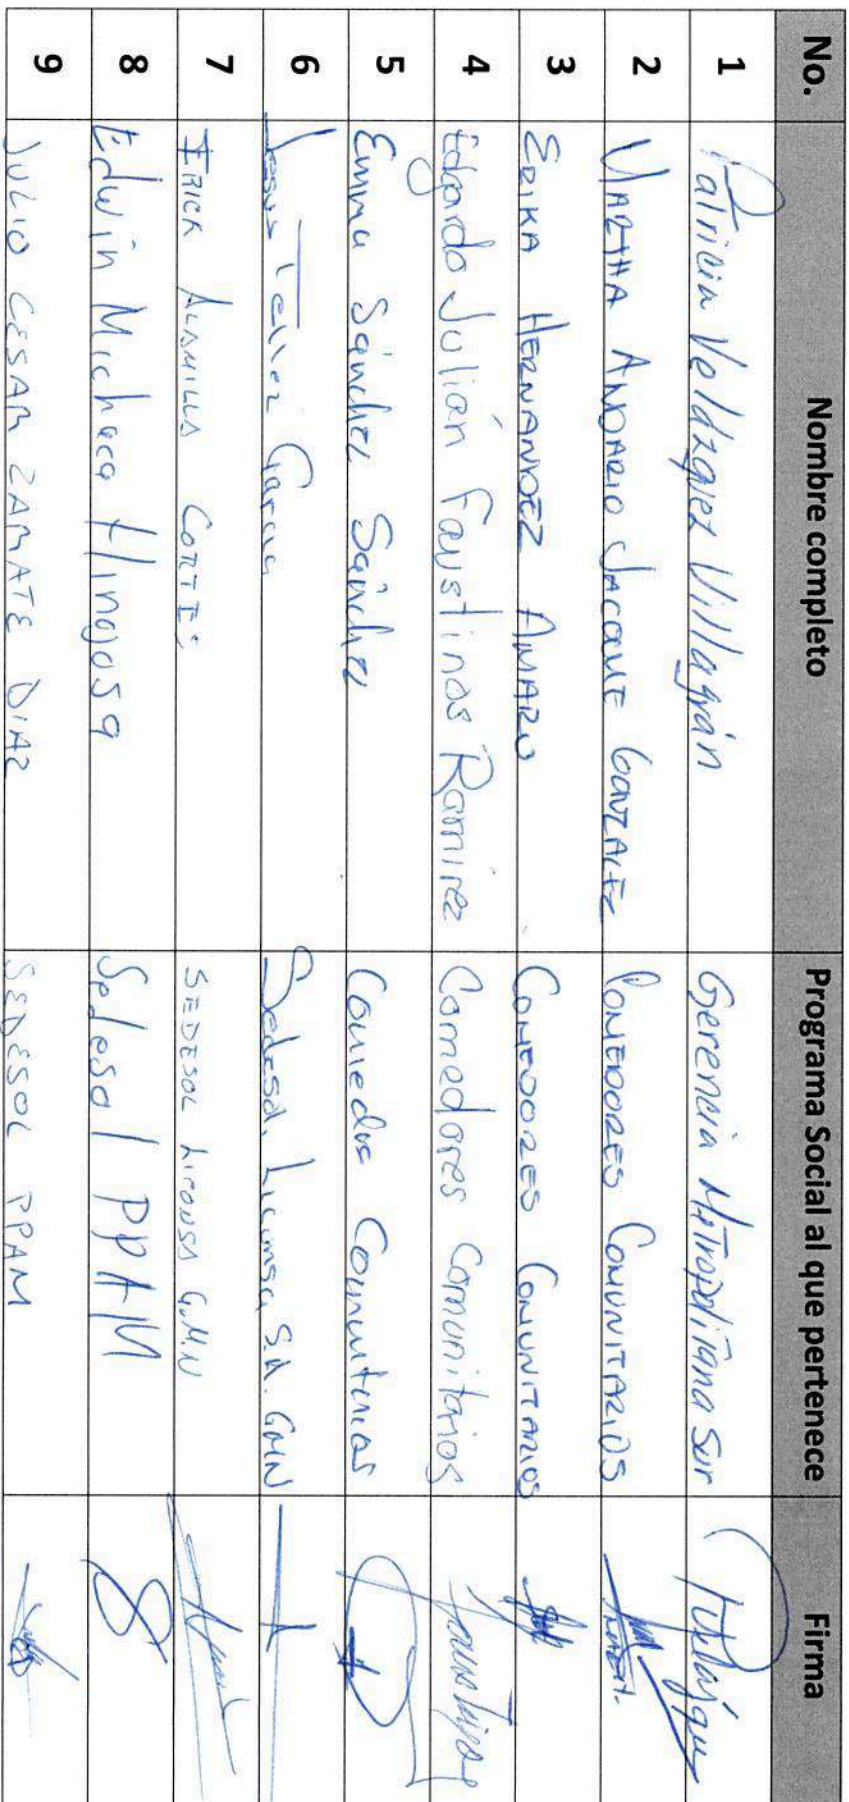 No. Nombre completo Programa Social al que pertenece Firma
1 Patricia Velázquez Villagrán Gerencia Metropolitana Sur
2 MARTHA JACQUE GONZALEZ COMEDORES COMUNITARIOS
3 ERIKA HERNANDEZ AMARO COMEDORES COMUNITARIOS
4 Edgardo Julián Faustinos Ramírez Comedores Comunitarios
5 Emma Sánchez Sánchez Comedores Comunitarios
6 Jesus Tellez Garcia Sedesol, Liconsa, S.A. GMN
7 ERICK ALAMILLA CORTES SEDESOL LICONSA G.M.N
8 Edwin Michaca Hinojosa Sedesol PPAM
9 JULIO CESAR ZARATE DIAZ SEDESOL PPAM